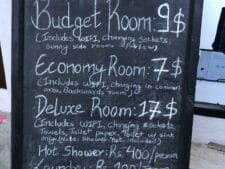 Budget Room: 9$
(Includes WIFI, charging sockets,
sunny side room
Economy Room: 7$
(Includes WIFI, charging in common
area, Backwards room)
Deluxe Room: 17$
(Includes WIFI, charging sockets
Towels, Toilet paper, Toilet w/ sink
only (Note: shower not included)
Hot Shower: Rs. 400/person